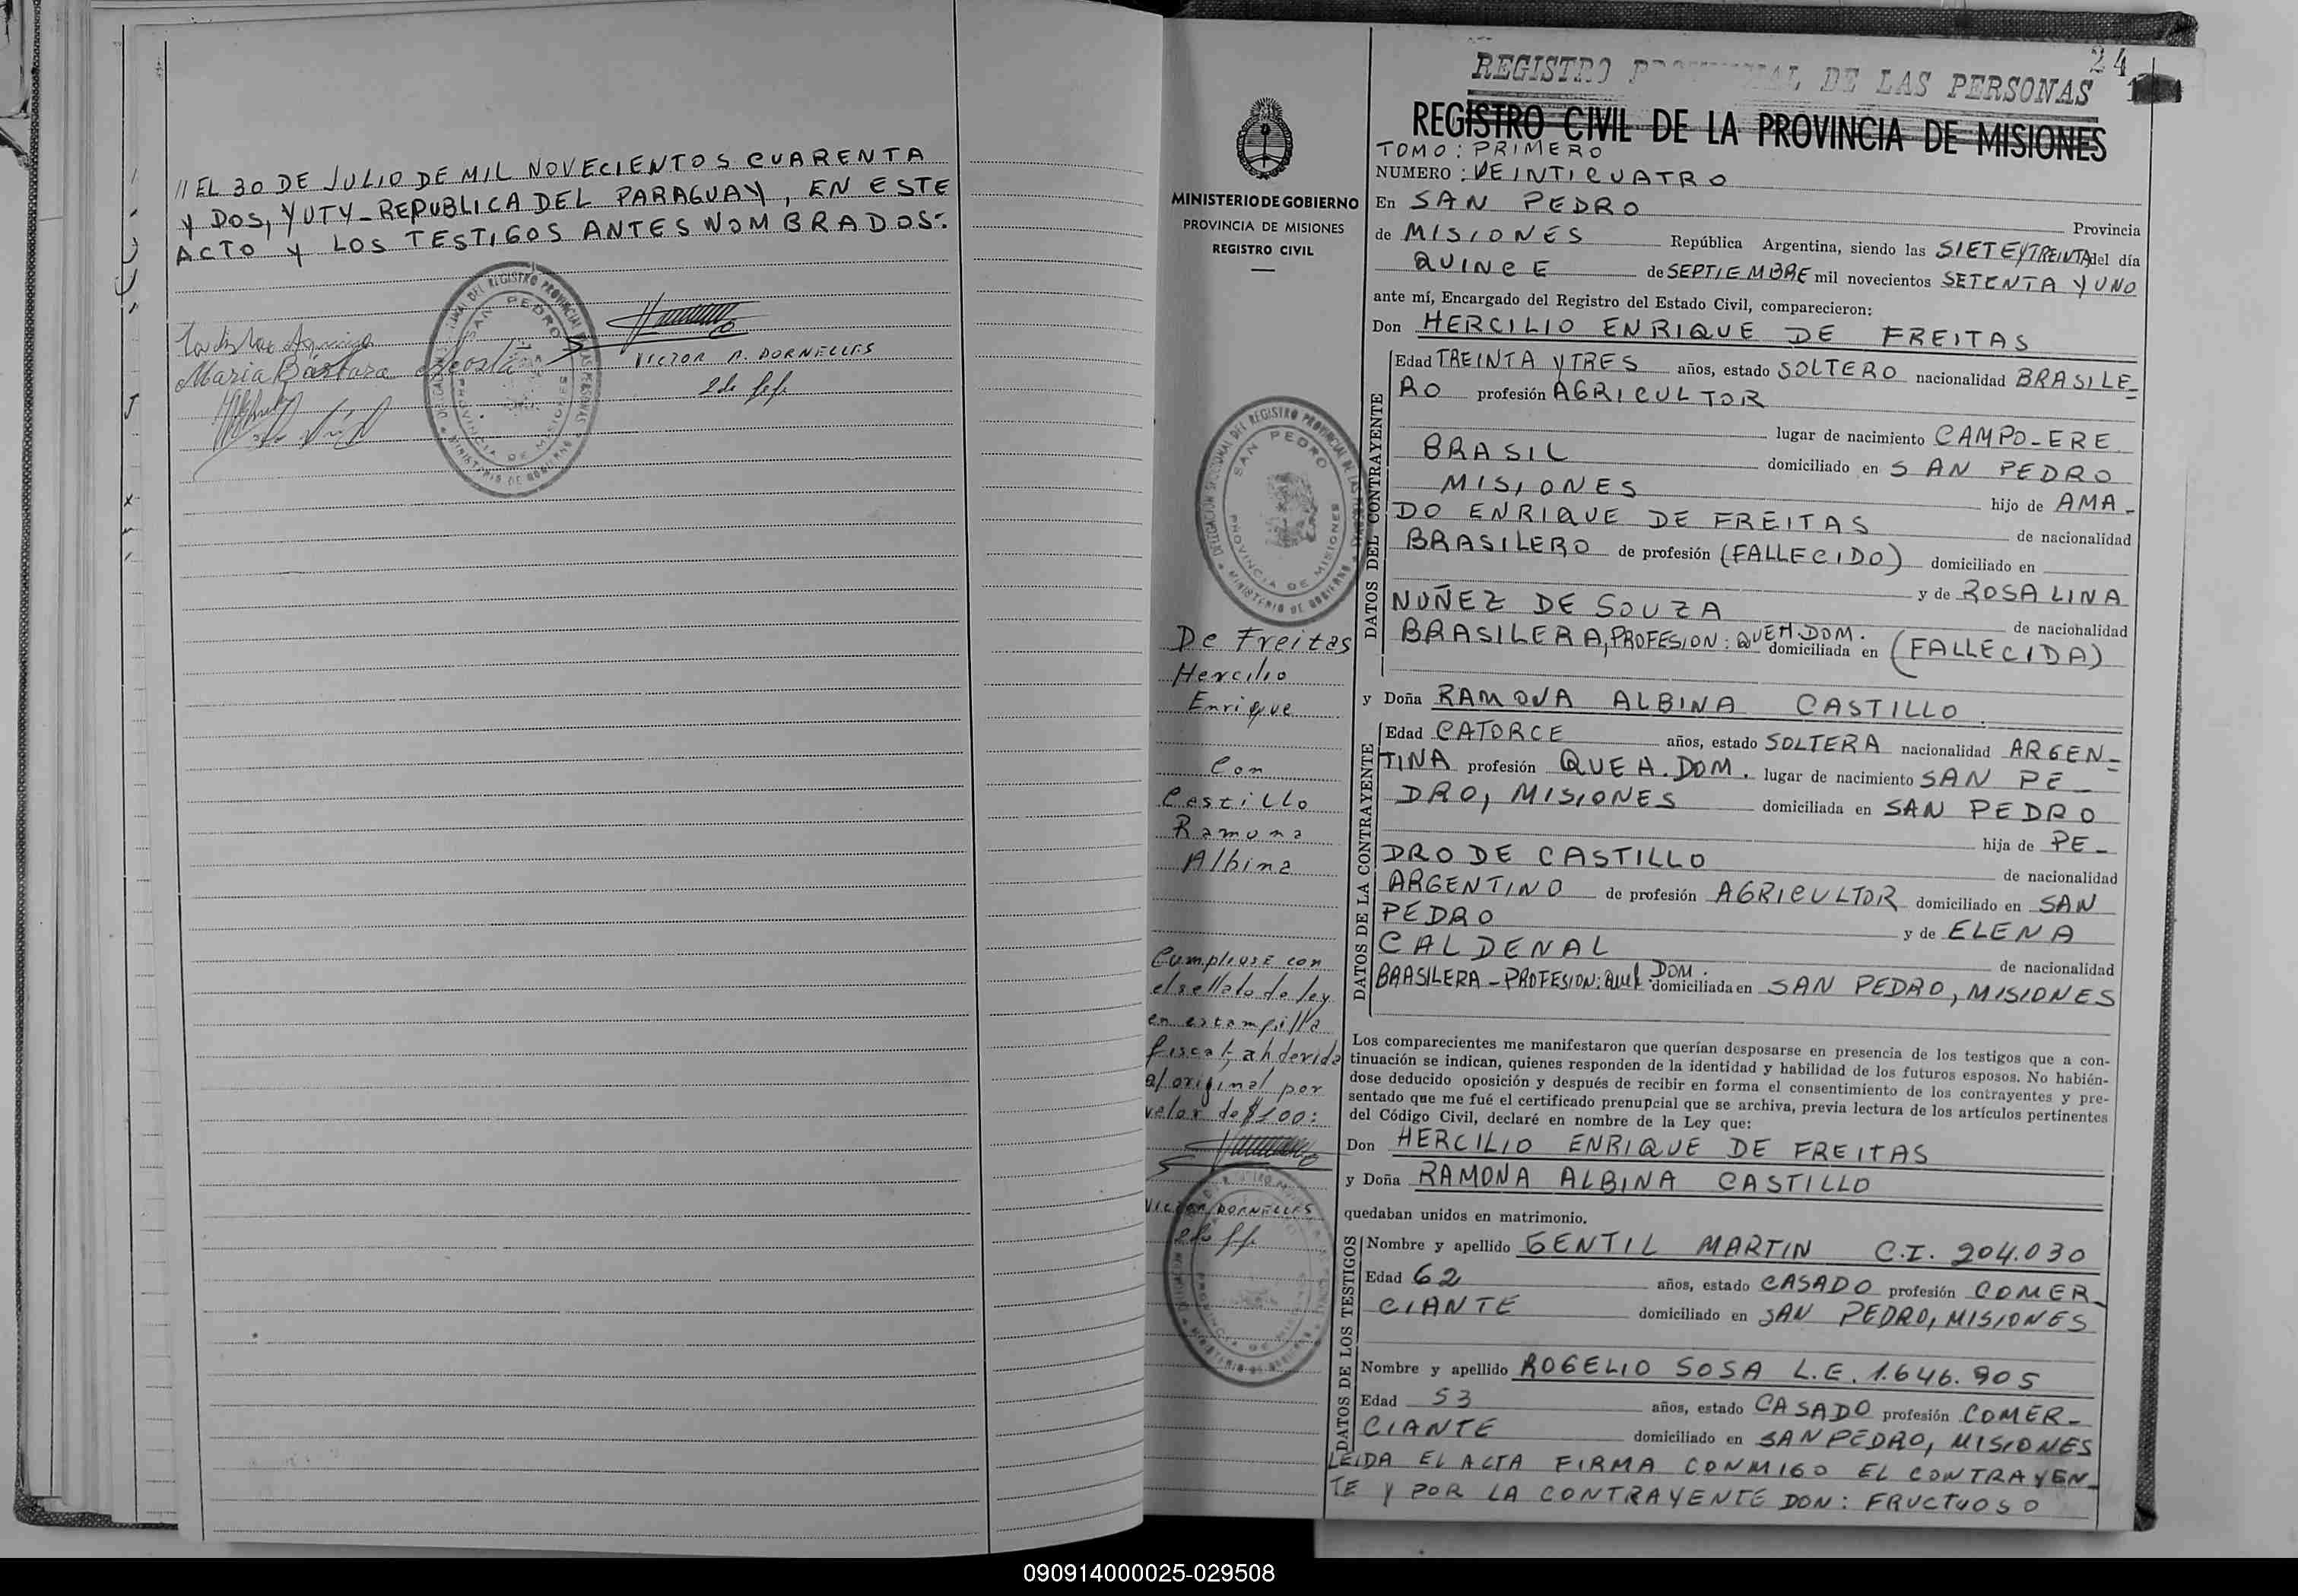 // EL 30 DE JULIO DE MIL NOVECIENTOS CUARENTA
Y DOS, YUTY_REPUBLICA DEL PARAGUAY, EN ESTE
ACTO Y LOS TESTIGOS ANTES NOMBRADOS:.
Maria Barbara Acosta
VICTOR A. DORNELLES
SAN PEDRO
PROVINCIA DE MISIONES
MINISTERIO DE GOBIERNO
24
REGISTRO PROVINCIAL DE LAS PERSONAS
REGISTRO CIVIL DE LA PROVINCIA DE MISIONES
MINISTERIO DE GOBIERNO
PROVINCIA DE MISIONES
REGISTRO CIVIL
DELEGACION SECCIONAL DEL REGISTRO PROVINCIAL DE LAS PERSONAS
SAN PEDRO
PROVINCIA DE MISIONES
MINISTERIO DE GOBIERNO
De Freitas
Hercilio
Enrique
Con
Castillo
Ramona
Albina
Cumpleuse con
el sellado de ley
en estampilla
fiscal ahderida
al original por
valor de $ 100:
VICTOR DORNELLES
TOMO: PRIMERO
NUMERO: VEINTICUATRO
En SAN PEDRO Provincia
de MISIONES República Argentina, siendo las SIETE Y TREINTA del día
QUINCE de SEPTIEMBRE mil novecientos SETENTA Y UNO
ante mí, Encargado del Registro del Estado Civil, comparecieron:
Don HERCILIO ENRIQUE DE FREITAS
DATOS DEL CONTRAYENTE
Edad TREINTA Y TRES años, estado SOLTERO nacionalidad BRASILE=
RO profesión AGRICULTOR
lugar de nacimiento CAMPO-ERE
BRASIL domiciliado en SAN PEDRO
MISIONES hijo de AMA-
DO ENRIQUE DE FREITAS de nacionalidad
BRASILERO de profesión (FALLECIDO) domiciliado en
y de ROSALINA
NUÑEZ DE SOUZA de nacionalidad
BRASILERA, PROFESION: QUEH. DOM. domiciliada en (FALLECIDA)
y Doña RAMONA ALBINA CASTILLO
DATOS DE LA CONTRAYENTE
Edad CATORCE años, estado SOLTERA nacionalidad ARGEN=
TINA profesión QUE A. DOM. lugar de nacimiento SAN PE-
DRO, MISIONES domiciliada en SAN PEDRO
hija de PE-
DRO DE CASTILLO de nacionalidad
ARGENTINO de profesión AGRICULTOR domiciliado en SAN
PEDRO y de ELENA
CALDENAL de nacionalidad
BRASILERA - PROFESION: DOM. domiciliada en SAN PEDRO, MISIONES
Los comparecientes me manifestaron que querían desposarse en presencia de los testigos que a con-
tinuación se indican, quienes responden de la identidad y habilidad de los futuros esposos. No habién-
dose deducido oposición y después de recibir en forma el consentimiento de los contrayentes y pre-
sentado que me fué el certificado prenupcial que se archiva, previa lectura de los artículos pertinentes
del Código Civil, declaré en nombre de la Ley que:
Don HERCILIO ENRIQUE DE FREITAS
y Doña RAMONA ALBINA CASTILLO
quedaban unidos en matrimonio.
DATOS DE LOS TESTIGOS
Nombre y apellido GENTIL MARTIN C.I. 204.030
Edad 62 años, estado CASADO profesión COMER-
CIANTE domiciliado en SAN PEDRO, MISIONES
Nombre y apellido ROGELIO SOSA L.E. 1.646.905
Edad 53 años, estado CASADO profesión COMER-
CIANTE domiciliado en SAN PEDRO, MISIONES
LEIDA EL ACTA FIRMA CONMIGO EL CONTRAYEN-
TE Y POR LA CONTRAYENTE DON: FRUCTUOSO
090914000025-029508